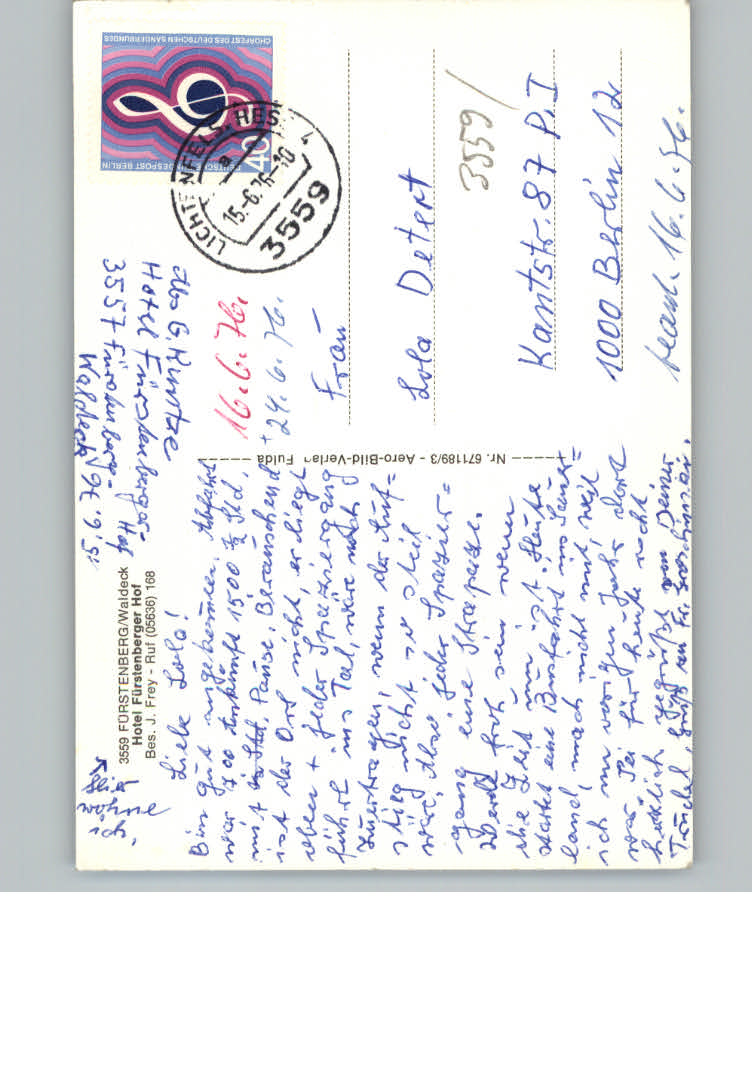 3559 FÜRSTENBERG/Waldeck
Hotel Fürstenberger Hof
Bes. J. Frey - Ruf (05636) 168
hier
wohne
ich
Liebe Lola!
Bin gut angekommen. Abfahrt
war 700 Ankunft 1500 ½ Std,
mit Pause. Berauschend
ist der Ort nicht, er liegt
oben + jeder Spaziergang
führt ins Tal, wäre noch
zuertragen, wenn der Auf=
stieg nicht so steil
wär, Also jeder Spazier=
gang eine Strapaze.
Werde froh sein wenn
die Zeit um ist. Heute
startet eine Busfahrt ins Sauer=
land, mach nicht mit, weil
ich im vorigen Jahr dort
war. Sei für heute recht
herzlich gegrüßt von Deiner
Trudel, Gruß an Fr.
Nr. 671189/3 - Aero-Bild-Verlag Fulda
Abs. G. Kuntze
Hotel Fürstenberger Hof
3557 Fürstenberg-
Waldeck
16.6.76.
+ 24.6.76.
CHORFEST DES DEUTSCHEN SÄNGERBUNDES
40
DEUTSCHE BUNDESPOST BERLIN
LICHTENFELS, HESS
15.-6.76-10
3559
Frau
Lola Detert
3559/
Kantstr. 87 P.I
1000 Berlin 12
beant. 16.6.76.